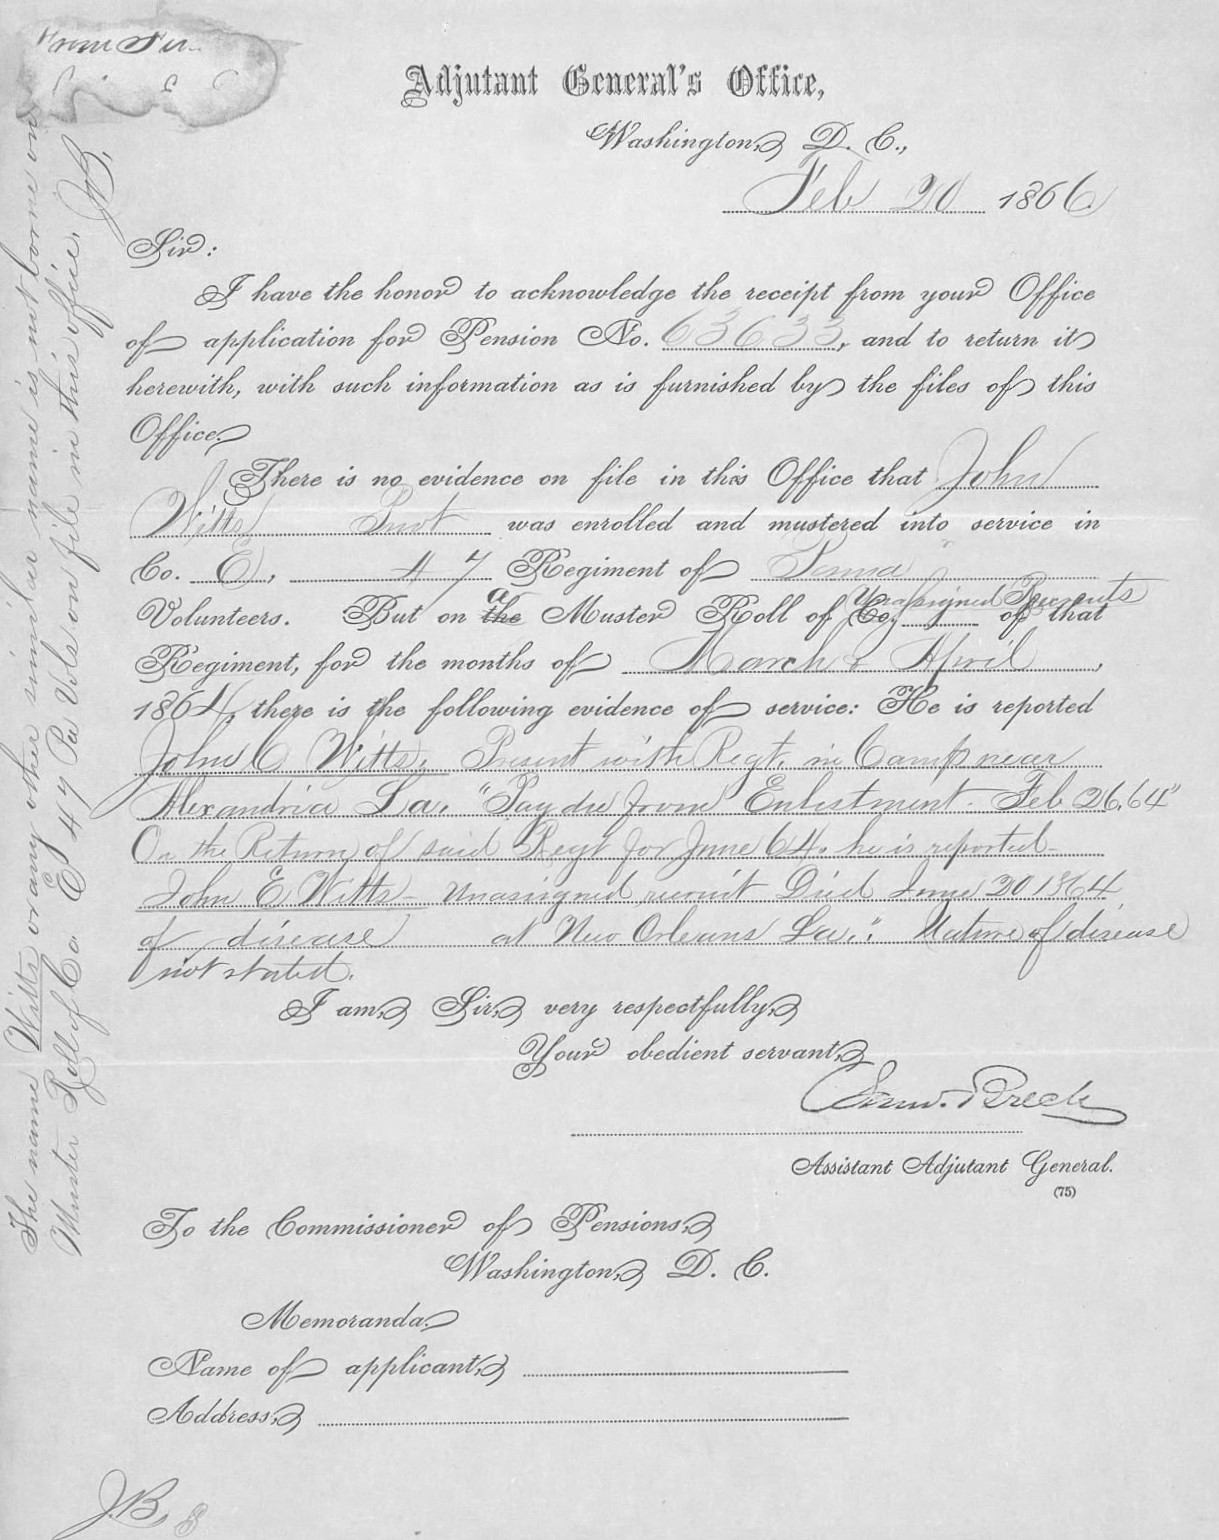 Adjutant General's Office,
Washington, D. C.,
Feb 20 1866.
Sir:
I have the honor to acknowledge the receipt from your Office
of application for Pension No. 63633, and to return it
herewith, with such information as is furnished by the files of this
Office.
There is no evidence on file in this Office that John
Witts was enrolled and mustered into service in
Co. E, 47 Regiment of Penna
Volunteers. But on the a Muster Roll of Co. Unassigned Recruits of that
Regiment, for the months of March & April,
1864, there is the following evidence of service: He is reported
John C Witts, Present with Regt. in Camp near
Alexandria La. "Pay due from Enlistment. Feb 26, 64"
On the Return of said Regt for June 64. he is reported
John E Witts - unassigned recruit Died June 20 1864
of disease at New Orleans La.". Nature of disease
not stated.
I am, Sir, very respectfully,
Your obedient servant,
Saml. Breck
Assistant Adjutant General.
(75)
To the Commissioner of Pensions,
Washington, D. C.
Memoranda.
Name of applicant,
Address,
J.B.
The name Witts or any other similar name is not borne on
Muster Roll of Co. E 47 Pa Vols on file in this office. J.B.